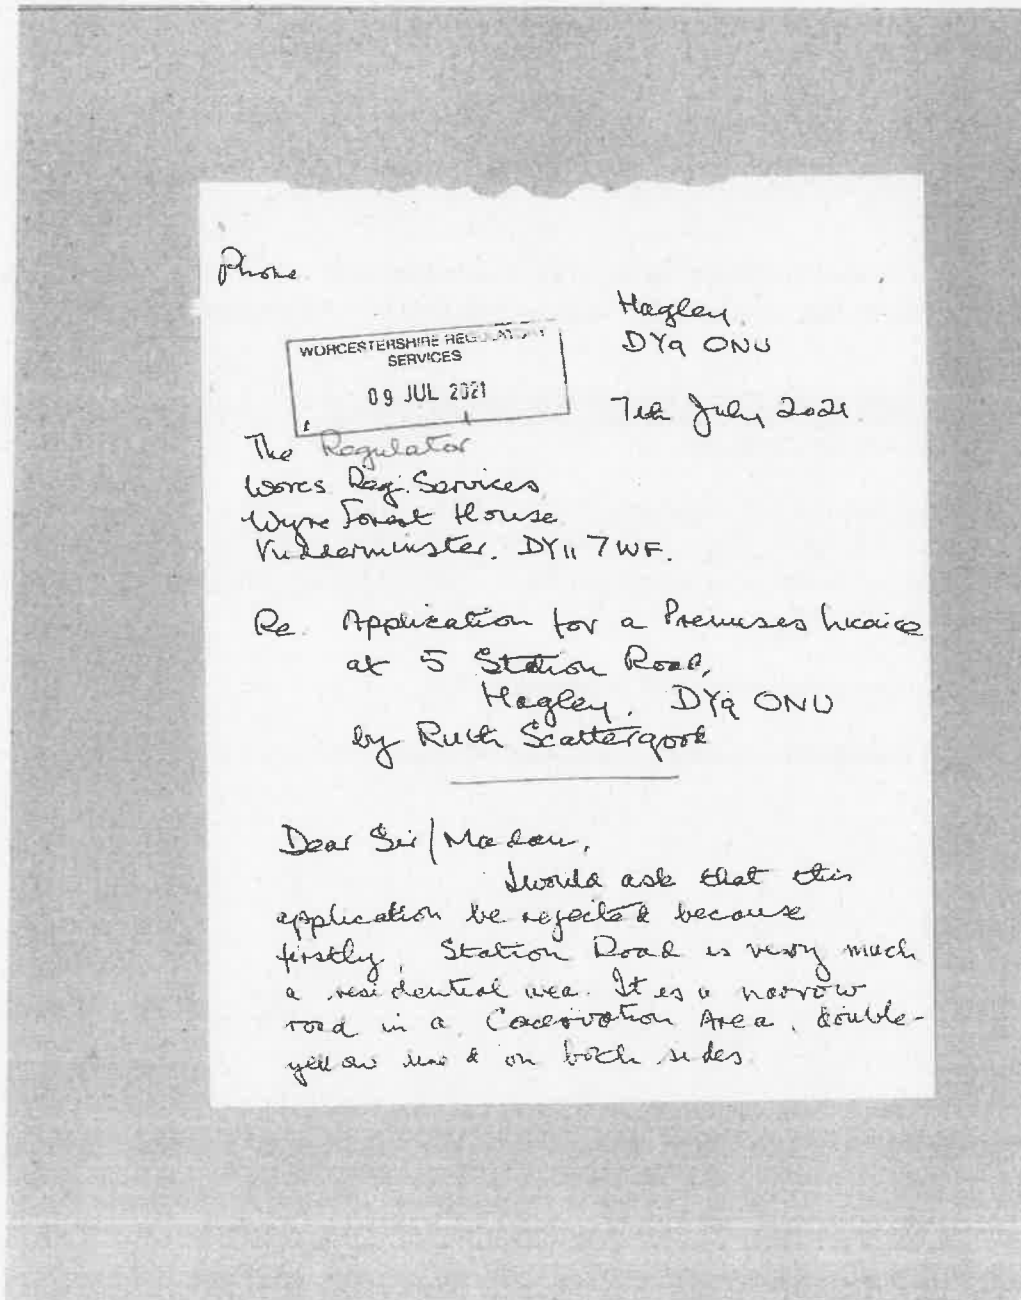 Phone
Hagley.
DY9 0NU
WORCESTERSHIRE REGULATORY
SERVICES
09 JUL 2021
7th July 2021
The Regulator
Worcs Reg. Services
Wyre Forest House
Kidderminster. DY11 7WF.
Re. Application for a Premises Licence
at 5 Station Road,
Hagley. DY9 0NU
by Ruth Scattergood
Dear Sir/Madam,
I would ask that this
application be rejected because
firstly, Station Road is very much
a residential area. It is a narrow
road in a Conservation Area, double-
yellow lined on both sides